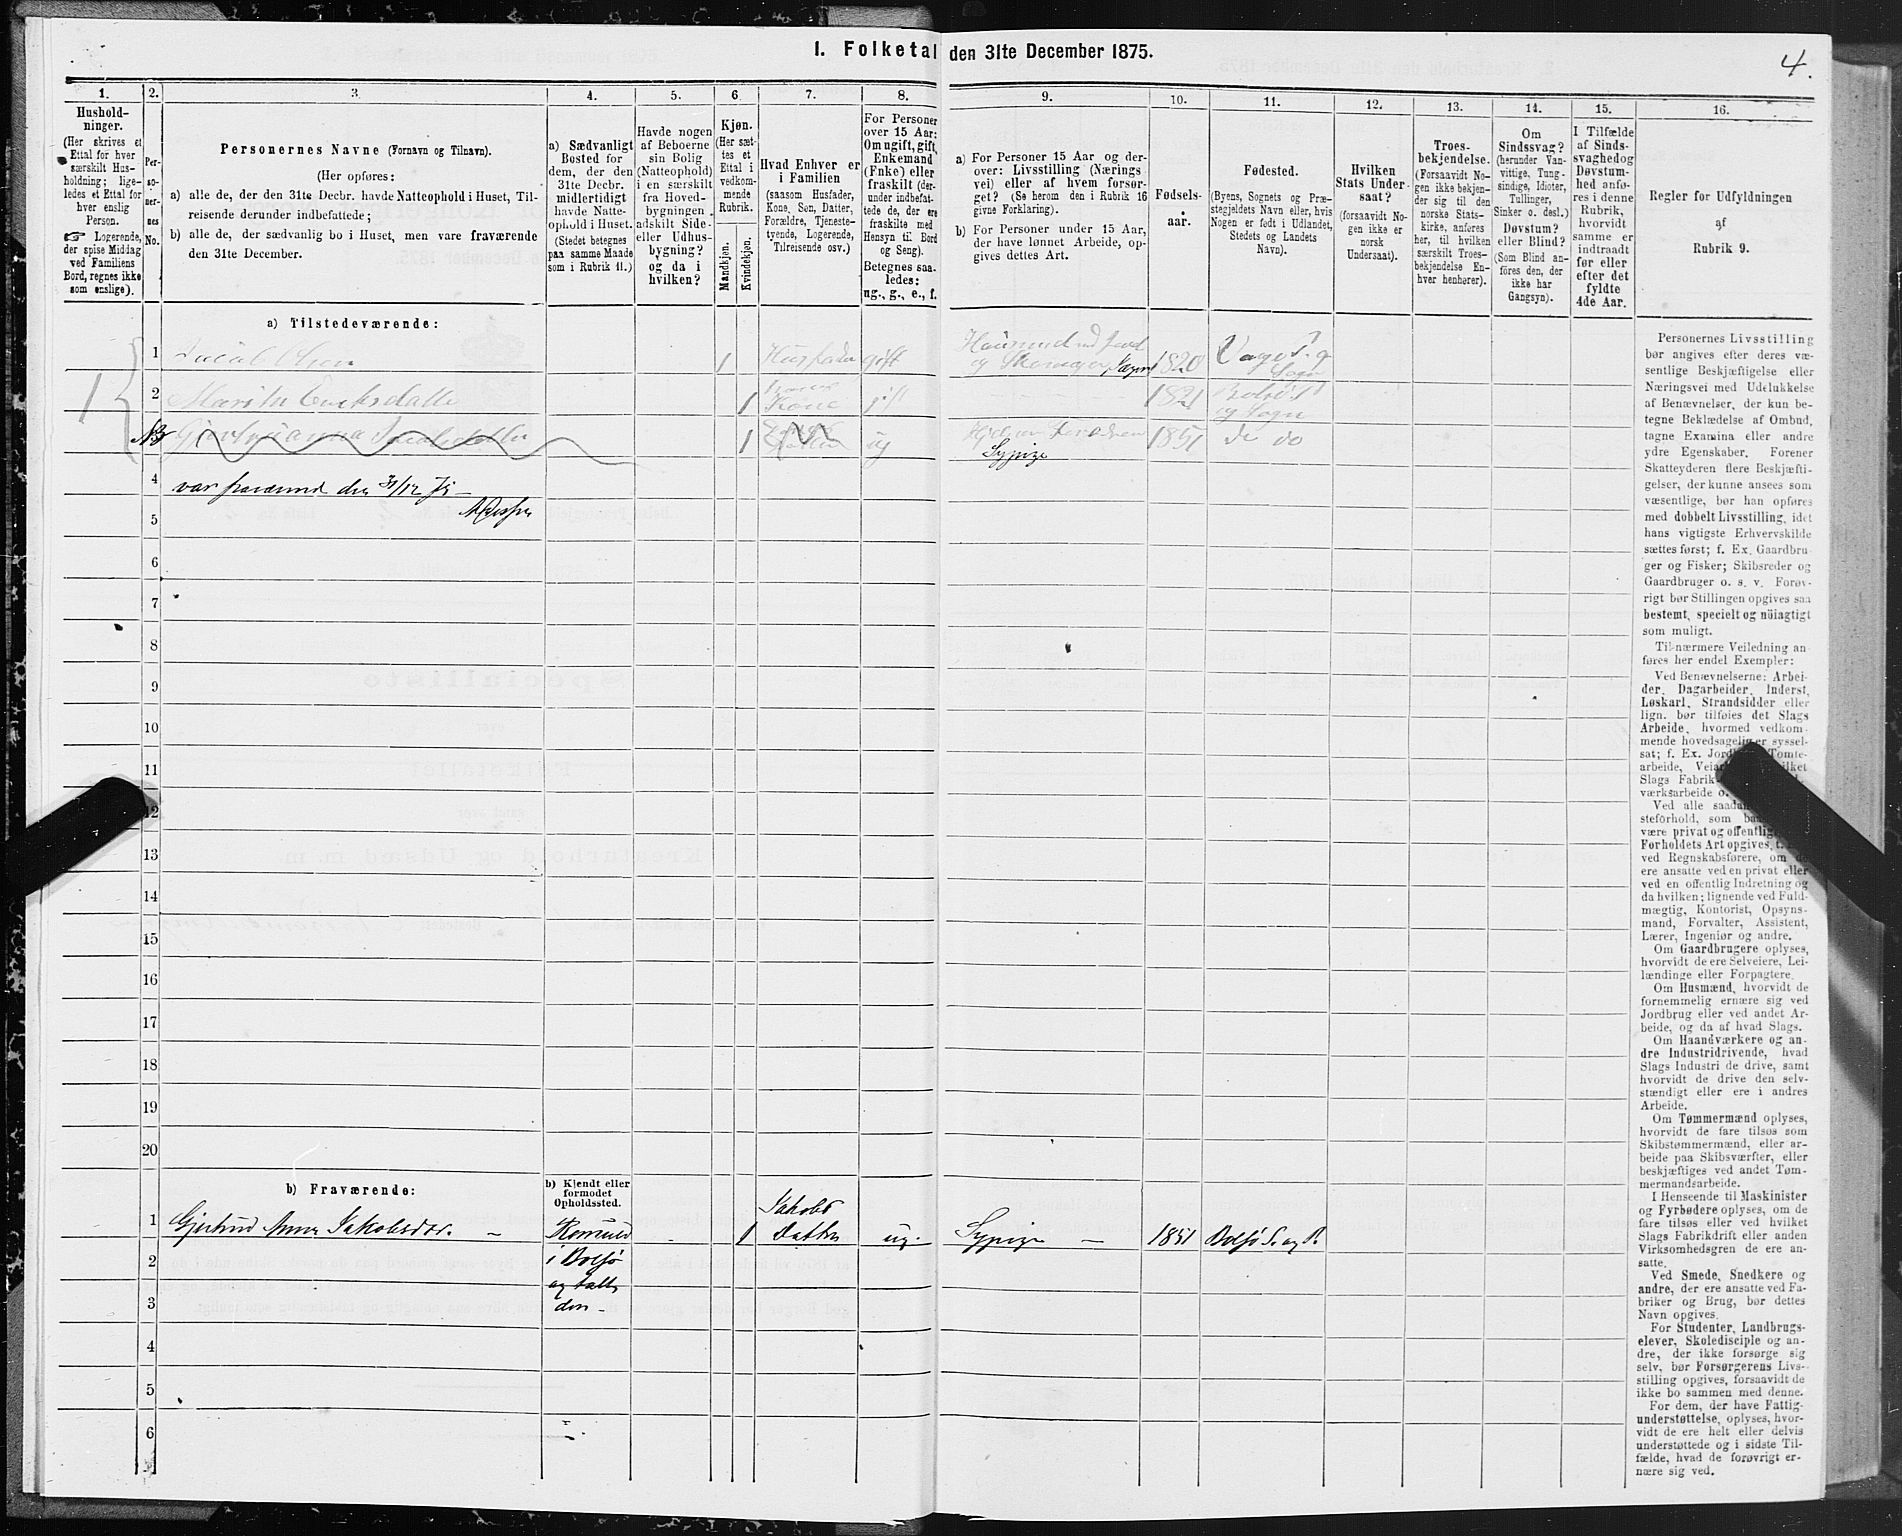 I. Folketal den 31te December 1875.
4.
1.
2.
3.
4.
5.
6
7.
8.
9.
10.
11.
12.
13.
14.
15.
16.
Hushold-
ninger.
(Her skrives et
Ettal for hver
særskilt Hus-
holdning; lige-
ledes et Ettal for
hver enslig
Person.
☞ Logerende,
der spise Middag
ved Familiens
Bord, regnes ikke
som enslige).
Per-
so-
ner-
nes
No.
Personernes Navne (Fornavn og Tilnavn).
(Her opføres:
a) alle de, der den 31te Decbr. havde Natteophold i Huset, Til-
reisende derunder indbefattede;
b) alle de, der sædvanlig bo i Huset, men vare fraværende
den 31te December.
a) Sædvanligt
Bosted for
dem, der den
31te Decbr.
midlertidigt
havde Natte-
ophold i Huset.
(Stedet betegnes
paa samme Maade
som i Rubrik 11.)
Havde nogen
af Beboerne
sin Bolig
(Natteophold)
i en særskilt
fra Hoved-
bygningen
adskilt Side-
eller Udhus-
bygning?
og da i
hvilken?
Kjøn.
(Her sæt-
tes et
Ettal i
vedkom-
mende
Rubrik.
Mandkjøn.
Kvindekjøn.
Hvad Enhver er
i Familien
(saasom Husfader,
Kone, Søn, Datter,
Forældre, Tjeneste-
tyende, Logerende,
Tilreisende osv.)
For Personer
over 15 Aar:
Om ugift, gift,
Enkemand
(Enke) eller
fraskilt (der-
under indbefat-
tede de, der ere
fraskilte med
Hensyn til Bord
og Seng).
Betegnes saa-
ledes:
ug., g., e., f.
a) For Personer 15 Aar og der-
over: Livsstilling (Nærings
vei) eller af hvem forsør-
get? (Se herom den i Rubrik 16
givne Forklaring).
b) For Personer under 15 Aar,
der have lønnet Arbeide, op-
gives dettes Art.
Fødsels-
aar.
Fødested.
(Byens, Sognets og Præ-
stegjeldets Navn eller, hvis
Nogen er født i Udlandet,
Stedets og Landets
Navn).
Hvilken
Stats Under-
saat?
(forsaavidt No-
gen ikke er
norsk
Undersaat).
Troes-
bekjendelse.
(Forsaavidt No-
gen ikke bekjen-
der sig til den
norske Stats-
kirke, anføres
her, til hvilken
særskilt Troes-
bekjendelse En-
hver henhører).
Om
Sindssvag?
(herunder Van-
vittige, Tung-
sindige, Idioter,
Tullinger,
Sinker o. desl.)
Døvstum?
eller Blind?
(Som Blind an-
föres den, der
ikke har
Gangsyn).
I Tilfælde
af Sinds-
svaghed og
Døvstum-
hed anfø-
res i denne
Rubrik,
hvorvidt
samme er
indtraadt
før eller
efter det
fyldte
4de Aar.
Regler for Udfyldningen
af
Rubrik 9.
a) Tilstedeværende:
1
1
1
Husfader gift
1820
2
1
Kone gift
1821
og Sogn
1
ug
1851 do do
Sypige
4
var fraværend den 31/12 75 —
5
6
7
8
9
10
11
12
13
14
15
16
17
18
19
20
b) Fraværende:
b) Kjendt eller
formodet
Opholdssted.
1 Gjertrud Anna Jakobsdtr. — 1 Jakobs Datter ug. Sypige — 1851 Bolsø S. og P.
2 i Bolsø
3
4
5
6
Personernes Livsstilling
bør angives efter deres væ-
sentlige Beskjæftigelse eller
Næringsvei med Udelukkelse
af Benævnelser, der kun be-
tegne Beklædelse af Ombud,
tagne Examina eller andre
ydre Egenskaber. Forener
Skatteyderen flere Beskjæfti-
gelser, der kunne ansees som
væsentlige, bør han opføres
med dobbelt Livsstilling, idet
hans vigtigste Erhvervskilde
sættes først; f. Ex. Gaardbru-
ger og Fisker; Skibsreder og
Gaardbruger o. s. v. Forøv-
rigt bør Stillingen opgives saa
bestemt, specielt og nöiagtigt
som muligt.
Til nærmere Veiledning an-
føres her endel Exempler:
Ved Benævnelserne: Arbei-
der, Dagarbeider, Inderst,
Løskarl, Strandsidder eller
lign. bør tilføies det Slags
Arbeide, hvormed vedkom-
mende hovedsagelig er syssel-
sat; f. Ex. Tomte-
arbeide,
Slags Fabrik-
værksarbeide o.
Ved alle
steforhold, som
være privat og offentlig
Forholdets Art opgives,
ved Regnskabsførere, om
ere ansatte ved en privat eller
ved en offentlig Indretning og
da hvilken; lignende ved Fuld-
mægtig, Kontorist, Opsyns-
mand, Forvalter, Assistent,
Lærer, Ingeniør og andre.
Om Gaardbrugere oplyses,
hvorvidt de ere Selveiere, Lei-
lændinge eller Forpagtere.
Om Husmænd, hvorvidt de
fornemmelig ernære sig ved
Jordbrug eller ved andet Ar-
beide, og da af hvad Slags.
Om Haandværkere og an-
dre Industridrivende, hvad
Slags Industri de drive, samt
hvorvidt de drive den selv-
stændigt eller ere i andres
Arbeide.
Om Tømmermænd oplyses,
hvorvidt de fare tilsøs som
Skibstømmermænd, eller ar-
beide paa Skibsværfter, eller
beskjæftiges ved andet Tøm-
mermandsarbeide.
I Henseende til Maskinister
og Fyrbødere oplyses, om de
fare tilsøs eller ved hvilket
Slags Fabrikdrift eller anden
Virksomhedsgren de ere an-
satte.
Ved Smede, Snedkere og
andre, der ere ansatte ved Fa-
briker og Brug, bør dettes
Navn opgives.
For Studenter, Landbrugs-
elever, Skoledisciple og an-
dre, der ikke forsørge sig
selv, bør Forsørgerens Livs-
stilling opgives, forsaavidt de
ikke bo sammen med denne.
For dem, der have Fattig-
understøttelse, oplyses, hvor-
vidt de ere helt eller delvis
understøttede og i sidste Til-
fælde, hvad de forøvrigt er-
nære sig ved.